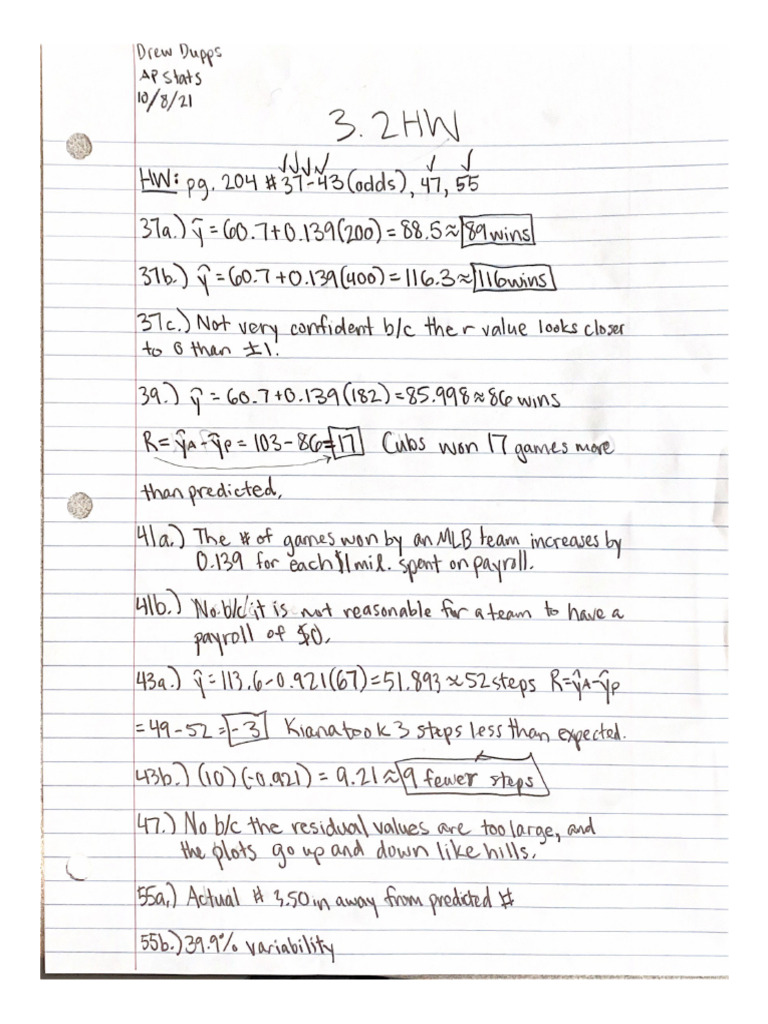 Drew Dupps
AP Stats
10/8/21
3.2HW
✓✓✓✓ ✓ ✓
HW: pg. 204 #37-43(odds), 47, 55
37a.) ŷ = 60.7+0.139(200) = 88.5 ≈ 89 wins
37b.) ŷ = 60.7+0.139(400) = 116.3 ≈ 116 wins
37c.) Not very confident b/c the r value looks closer
to 0 than ±1.
39.) ŷ = 60.7+0.139(182) = 85.998 ≈ 86 wins
R = ŷA - ŷP = 103 - 86 = 17 Cubs won 17 games more
than predicted,
41a.) The # of games won by an MLB team increases by
0.139 for each $1 mil. spent on payroll.
41b.) No b/c it is not reasonable for a team to have a
payroll of $0.
43a.) ŷ = 113.6-0.921(67) = 51.893 ≈ 52 steps R=ŷA-ŷP
= 49 - 52 = -3 Kiana took 3 steps less than expected.
43b.) (10)(-0.921) = 9.21 ≈ 9 fewer steps
47.) No b/c the residual values are too large, and
the plots go up and down like hills.
55a.) Actual # 3.50 in away from predicted #
55b.) 39.9% variability